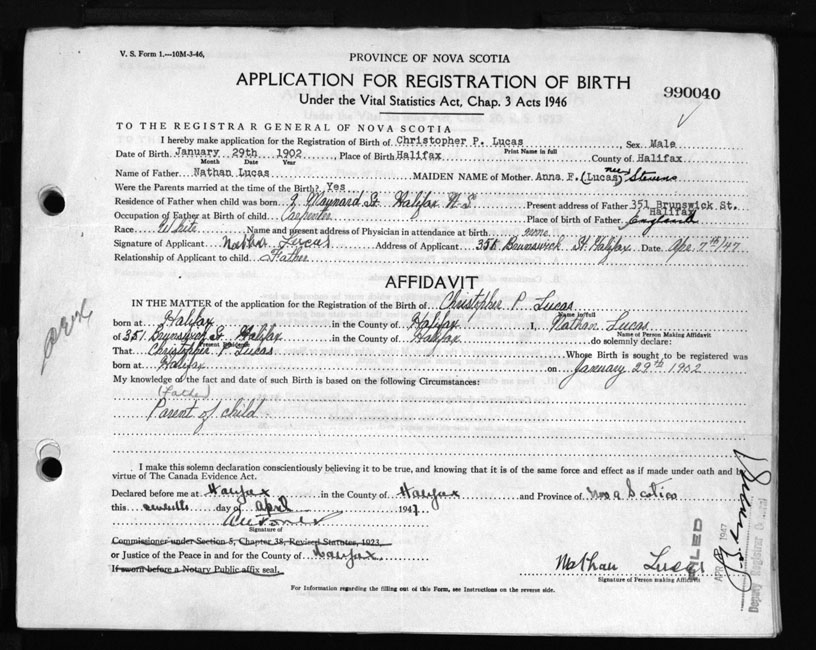 V. S. Form 1.—10M-3-46,
PROVINCE OF NOVA SCOTIA
APPLICATION FOR REGISTRATION OF BIRTH
990040
Under the Vital Statistics Act, Chap. 3 Acts 1946
TO THE REGISTRAR GENERAL OF NOVA SCOTIA
I hereby make application for the Registration of Birth of Christopher P. Lucas Sex Male
Print Name in full
Date of Birth January 29th 1902, Place of Birth Halifax County of Halifax
Month Date Year
Name of Father Nathan Lucas MAIDEN NAME of Mother Anna F. (Lucas) nee Stevens
Were the Parents married at the time of the Birth? Yes
Residence of Father when child was born Maynard St. Halifax N.S. Present address of Father 351 Brunswick St. Halifax
Occupation of Father at Birth of child Carpenter Place of birth of Father England
Race White Name and present address of Physician in attendance at birth none
Signature of Applicant Nathan Lucas Address of Applicant 351 Brunswick St. Halifax Date Apr 7th/47
Relationship of Applicant to child Father
AFFIDAVIT
IN THE MATTER of the application for the Registration of the Birth of Christopher P. Lucas
Name in full
born at Halifax in the County of Halifax I, Nathan Lucas
Name of Person Making Affidavit
of 351 Brunswick St. Halifax in the County of Halifax do solemnly declare:
Present Residence
That Christopher P Lucas Whose Birth is sought to be registered was
born at Halifax on January 29th 1902
My knowledge of the fact and date of such Birth is based on the following Circumstances:
(Father)
Parent of child
I make this solemn declaration conscientiously believing it to be true, and knowing that it is of the same force and effect as if made under oath and by
virtue of The Canada Evidence Act.
Declared before me at Halifax in the County of Halifax and Province of Nova Scotia
this seventh day of April 1947
Signature of
Commissioner under Section 5, Chapter 38, Revised Statutes, 1923,
or Justice of the Peace in and for the County of Halifax
If sworn before a Notary Public affix seal.
Nathan Lucas
Signature of Person making Affidavit
FILED
APR 1947
Deputy Registrar General
For Information regarding the filling out of this Form, see Instructions on the reverse side.